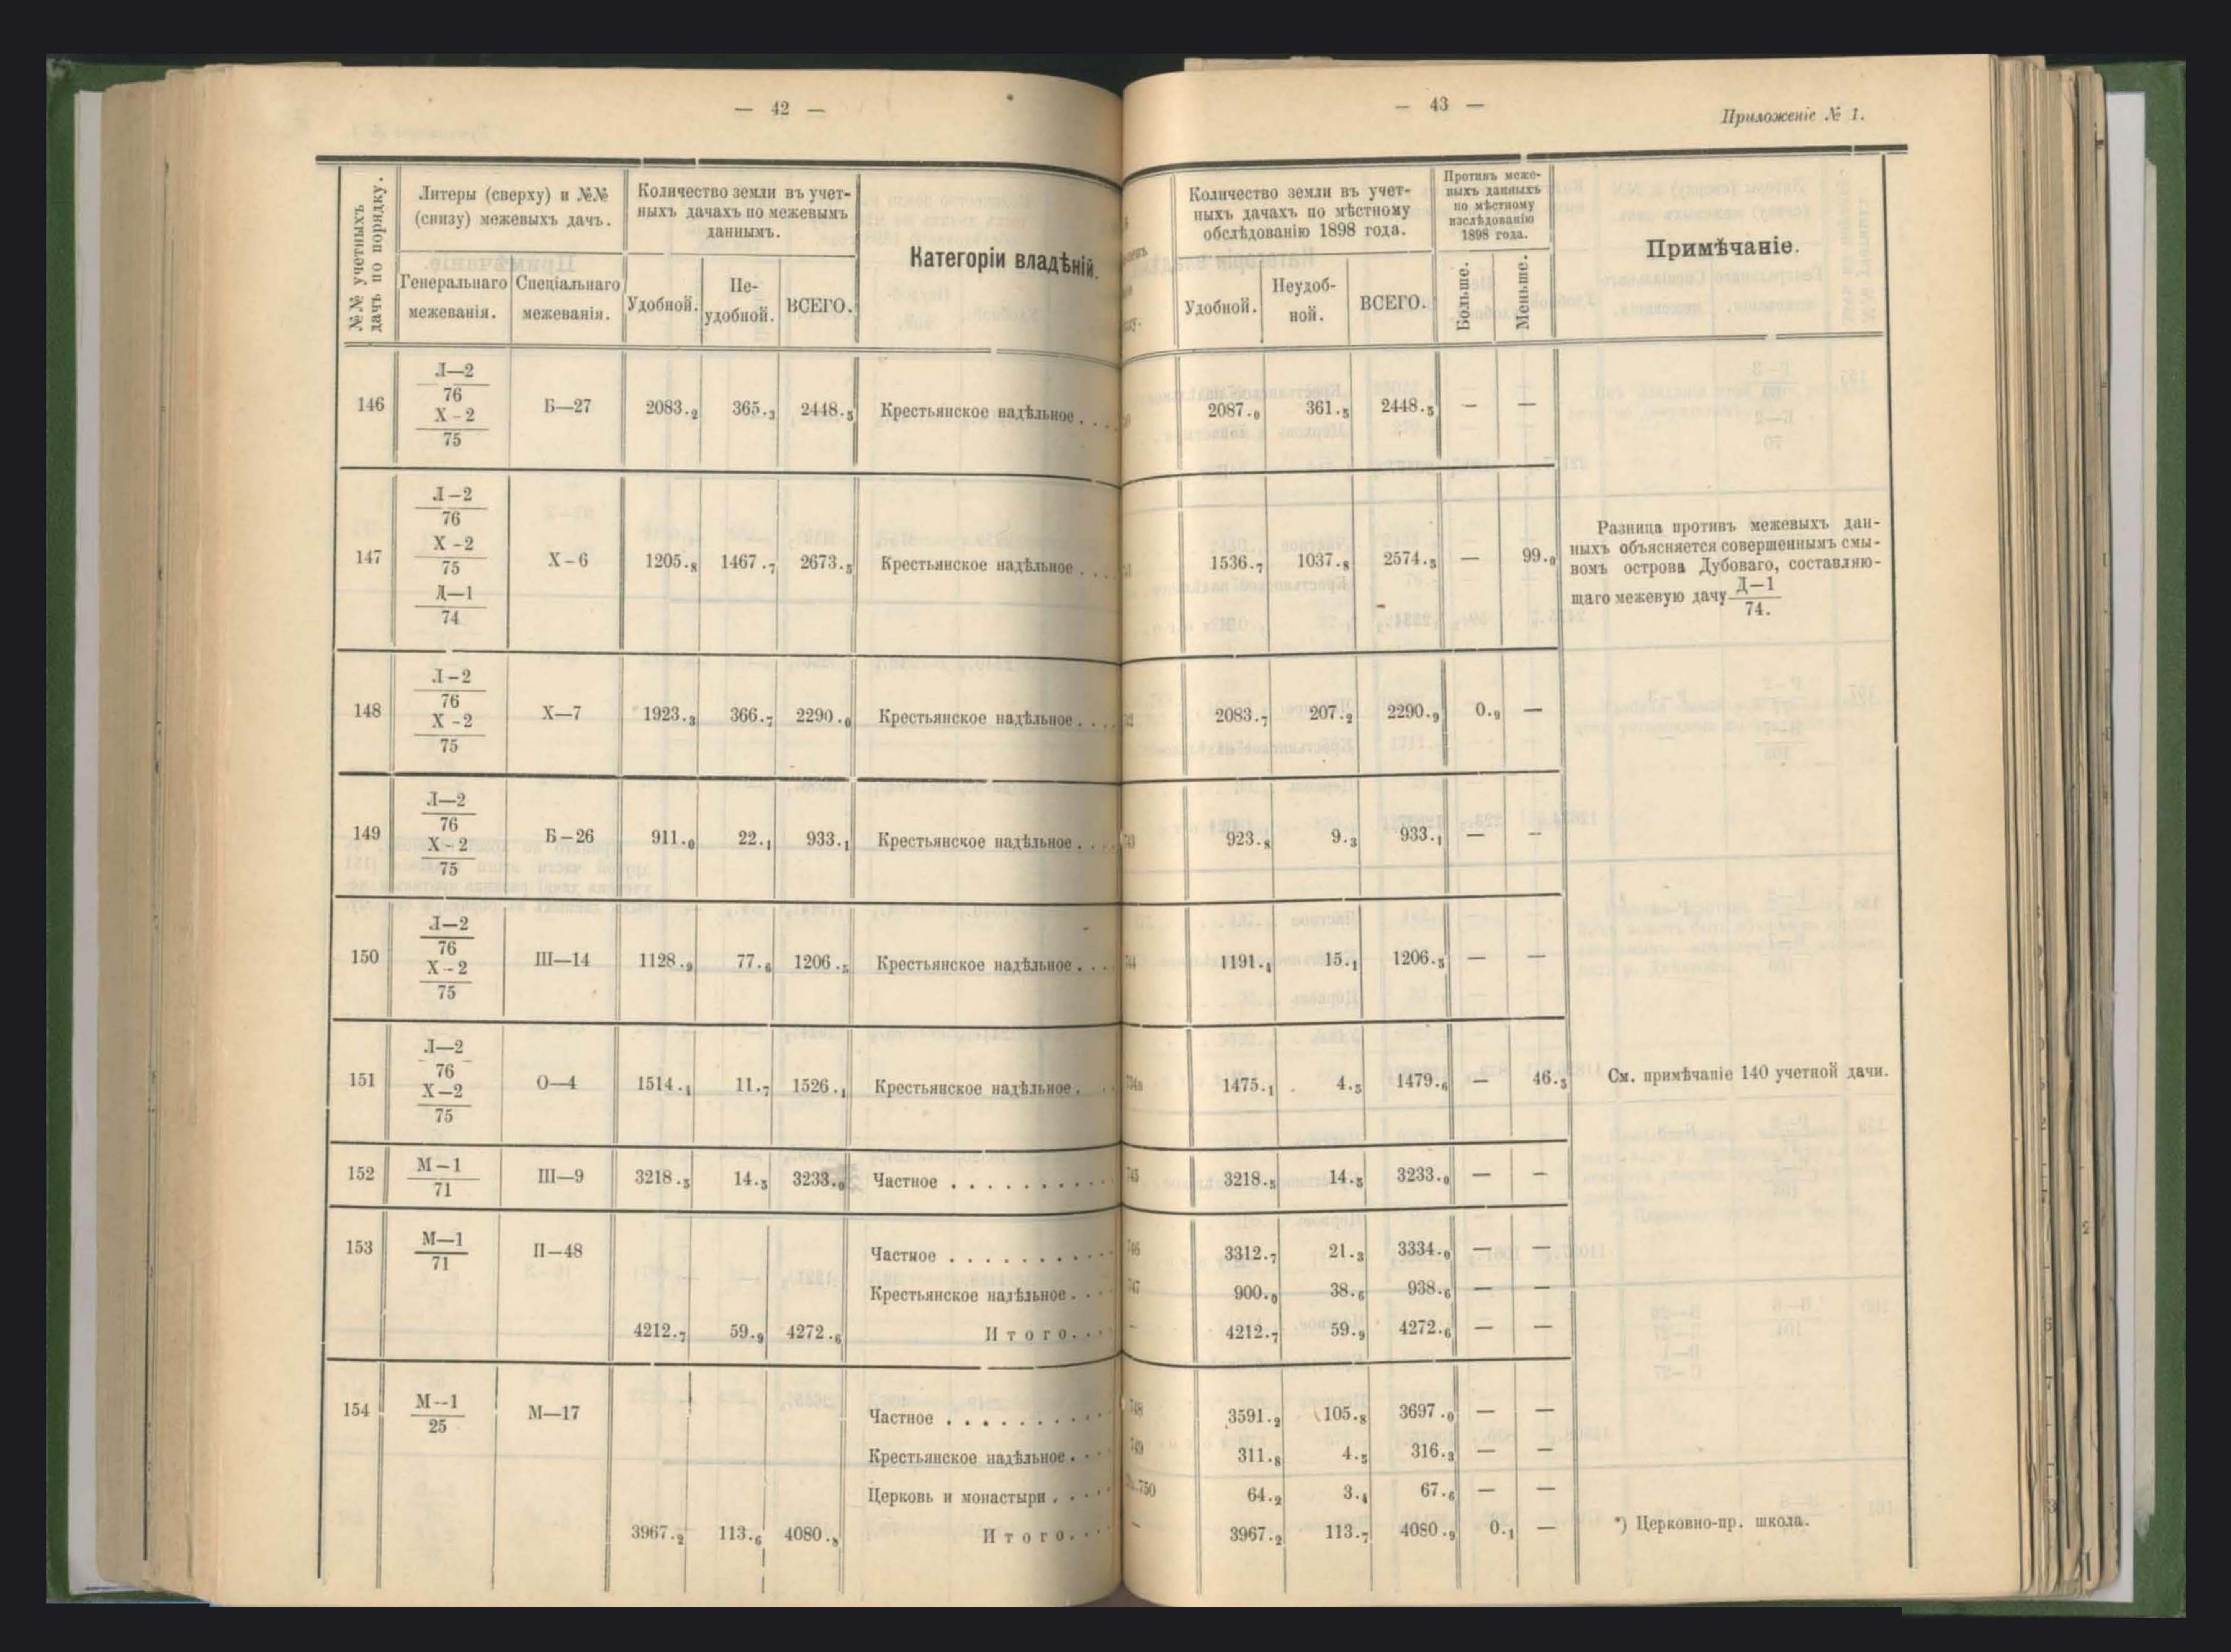 — 42 —
№№ учетныхъ
дачъ по порядку.
Литеры (сверху) и №№
(снизу) межевыхъ дачъ.
Генеральнаго
межеванія.
Спеціальнаго
межеванія.
Количество земли въ учет-
ныхъ дачахъ по межевымъ
даннымъ.
Удобной.
Не-
удобной.
ВСЕГО.
Категоріи владѣній.
146
Л—2
76
Х-2
75
Б—27 2083.2 365.3 2448.5 Крестьянское надѣльное . . .
147
Л-2
76
Х-2
75
Д—1
74
Х-6 1205.8 1467.7 2673.5 Крестьянское надѣльное . . .
148
Л-2
76
Х-2
75
Х—7 1923.3 366.7 2290.0 Крестьянское надѣльное . . .
149
Л—2
76
Х-2
75
Б—26 911.0 22.1 933.1 Крестьянское надѣльное . . .
150
Л—2
76
Х-2
75
Ш—14 1128.9 77.6 1206.5 Крестьянское надѣльное . . .
151
Л—2
76
Х—2
75
О—4 1514.4 11.7 1526.1 Крестьянское надѣльное . . .
152
М-1
71
Ш—9 3218.5 14.5 3233.0 Частное . . . . . . . . . .
153
М—1
71
П—48 Частное . . . . . . . . . .
Крестьянское надѣльное . . .
4212.7 59.9 4272.6 Итого. . . .
154
М—1
25
М—17 Частное . . . . . . . . . .
Крестьянское надѣльное . . .
Церковь и монастыри . . . .
3967.2 113.6 4080.8 Итого. . . .
— 43 —
Приложеніе № 1.
Количество земли въ учет-
ныхъ дачахъ по мѣстному
обслѣдованію 1898 года.
Удобной.
Неудоб-
ной.
ВСЕГО.
Противъ меже-
выхъ данныхъ
по мѣстному
изслѣдованію
1898 года.
Больше.
Меньше.
Примѣчаніе.
2087.0 361.5 2448.5 — —
1536.7 1037.8 2574.5 — 99.0
Разница противъ межевыхъ дан-
ныхъ объясняется совершеннымъ смы-
вомъ острова Дубоваго, составляю-
щаго межевую дачу Д—1
74.
2083.7 207.2 2290.9 0.9 —
743 923.8 9.3 933.1 — —
744 1191.4 15.1 1206.5 — —
1475.1 4.5 1479.6 — 46.5 См. примѣчаніе 140 учетной дачи.
745 3218.5 14.5 3233.0 — —
746 3312.7 21.3 3334.0 — —
747 900.0 38.6 938.6 — —
— 4212.7 59.9 4272.6 — —
748 3591.2 105.8 3697.0 — —
749 311.8 4.5 316.3 — —
750 64.2 3.4 67.6 — —
— 3967.2 113.7 4080.9 0.1 — *) Церковно-пр. школа.